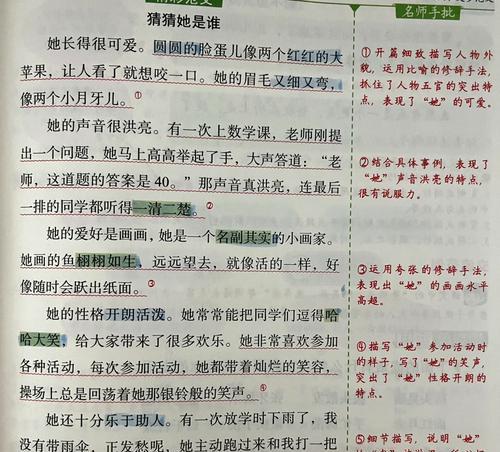 名师手批
猜猜她是谁
她长得很可爱。圆圆的脸蛋儿像两个红红的大
苹果，让人看了就想咬一口。她的眉毛又细又弯，
像两个小月牙儿。①
她的声音很洪亮。有一次上数学课，老师刚提
出一个问题，她马上高高举起了手，大声答道：“老
师，这道题的答案是 40。”那声音真洪亮，连最后
一排的同学都听得一清二楚。②
她的爱好是画画，她是一个名副其实的小画家。
她画的鱼栩栩如生，远远望去，就像活的一样，好
像随时会跃出纸面。③
她的性格开朗活泼。她常常能把同学们逗得哈
哈大笑，给大家带来了很多欢乐。她非常喜欢参加
各种活动，每次参加活动，她都带着灿烂的笑容，
操场上总是回荡着她那银铃般的笑声。④
她还十分乐于助人。有一次放学时下雨了，我
没有带雨伞，正发愁呢，她主动跑过来和我打一把
①开篇细致描写人物外
貌，运用比喻的修辞手法，
抓住了人物五官的突出特
点，表现了“她”的可爱。
②结合具体事例，表现了
“她”声音洪亮的特点，
很有说服力。
③运用夸张的修辞手法，
表现出“她”的画画水平
高超。
④描写“她”参加活动时
的样子，写了“她”的笑声，
突出了“她”性格开朗的
特点。
⑤细节描写，说明“她”